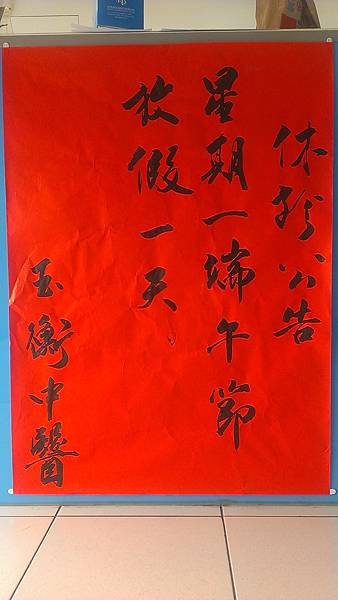 休診公告
星期一端午節
放假一天
玉衡中醫